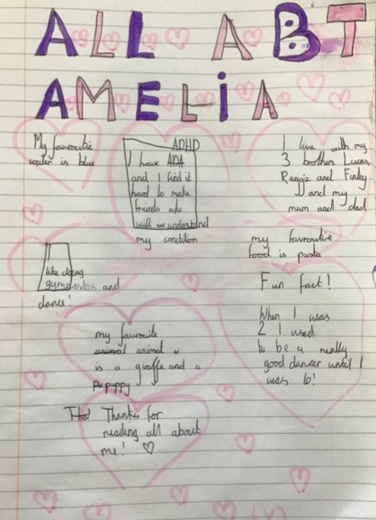 ALL ABT
AMELIA
My favourite
color is blue
ADHD
I have ADA
and I find it
hard to make
friends who
will understand
my condition
I live with my
3 brothers Lucas,
Reggie and Finley
and my
mum and dad
I
like doing
gymnastics and
dance!
my favourite
food is pasta
Fun fact!
When I was
2 I used
to be a really
good dancer until I
was 6!
my favourite
animal animal
is a giraffe and a
Puppy
Tha! Thanks for
reading all about
me! ♡